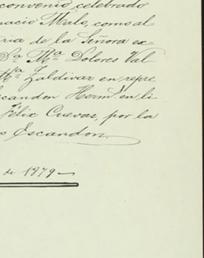 convenio celebrado
nacio Merle, como al
ria de la Señora ex
Dª Mª Dolores Val
Mª Zaldivar en repre
scandon Hermˢ en li
Felix Cuevas, por la
o Escandon.
de 1879